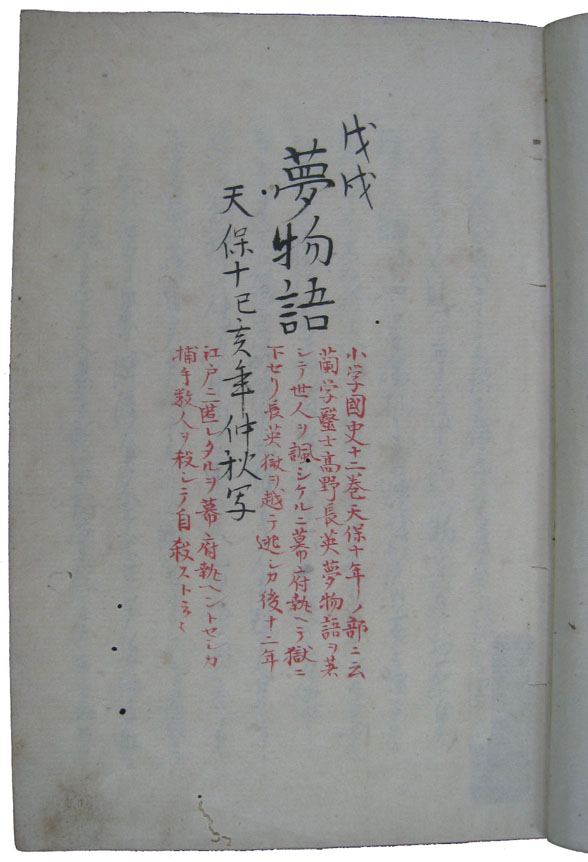 戊戌
夢物語
天保十己亥年仲秋写
小学國史十二巻天保十年ノ部ニ云
蘭学醫士高野長英夢物語ヲ著
シテ世人ヲ諷シケルニ幕府執ヘテ獄ニ
下セリ長英獄ヲ越テ逃シカ後十二年
江戸ニ匿レタルヲ幕府執ヘントセシカ
捕手数人ヲ殺シテ自殺スト云々